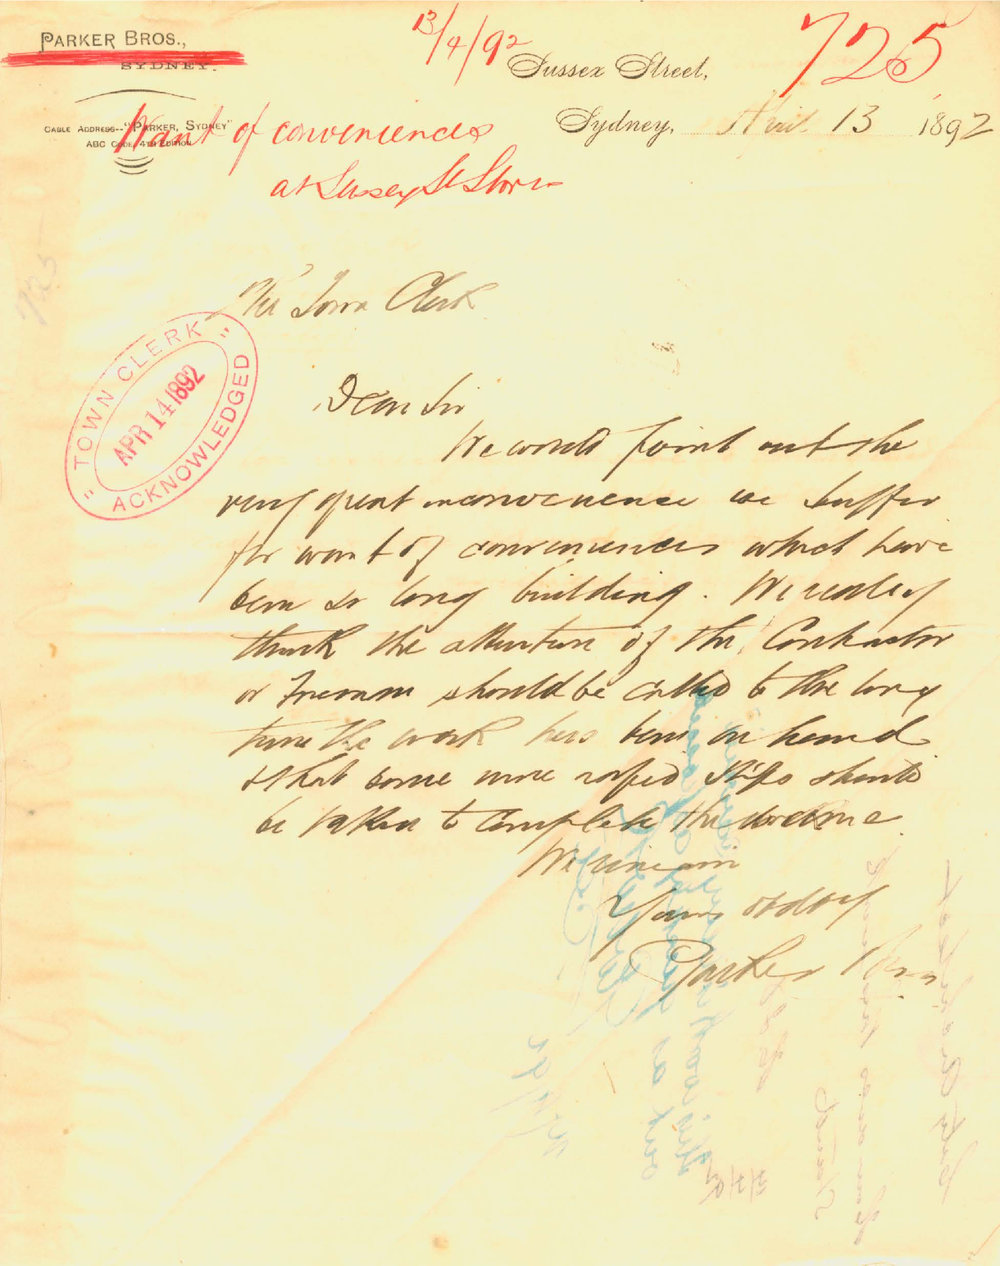 PARKER BROS.,
SYDNEY.
CABLE ADDRESS--"PARKER, SYDNEY"
ABC CODE, 4TH EDITION
13/4/92
725
Sussex Street,
Sydney, April 13 1892
Want of conveniences
at Sussex St Stores
The Town Clerk
"TOWN CLERK"
APR 14 1892
ACKNOWLEDGED
Dear Sir
We would point out the
very great inconvenience we suffer
for want of conveniences which have
been so long building. We really
think the attention of the Contractor
or Foreman should be called to the long
time the work has been in hand
& that some more rapid steps should
be taken to complete the
We remain
Yours
Parker Bros